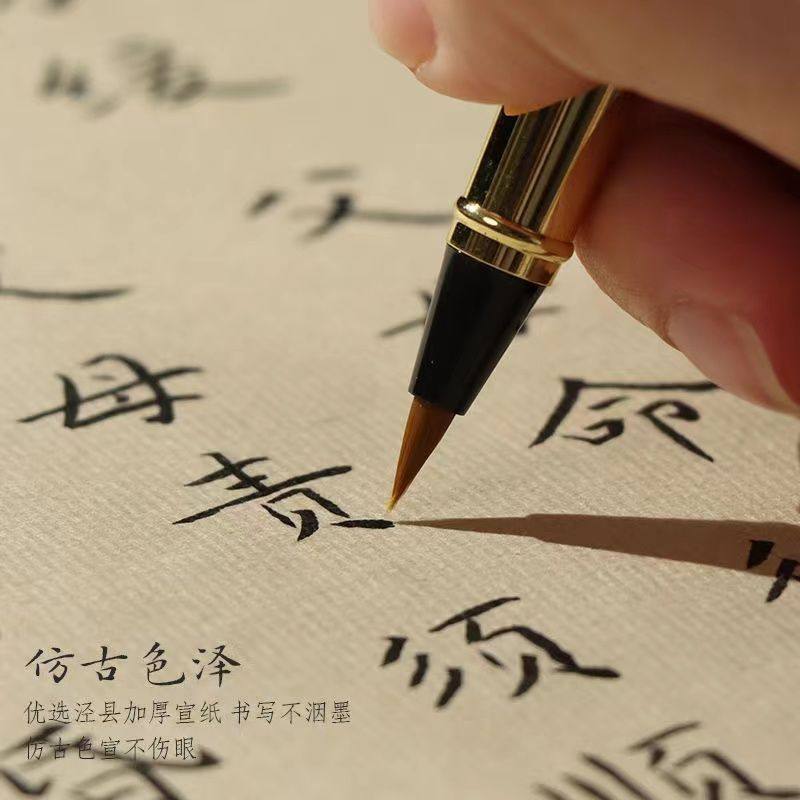 父命
母责须顺
仿古色泽
优选泾县加厚宣纸 书写不洇墨
仿古色宣不伤眼